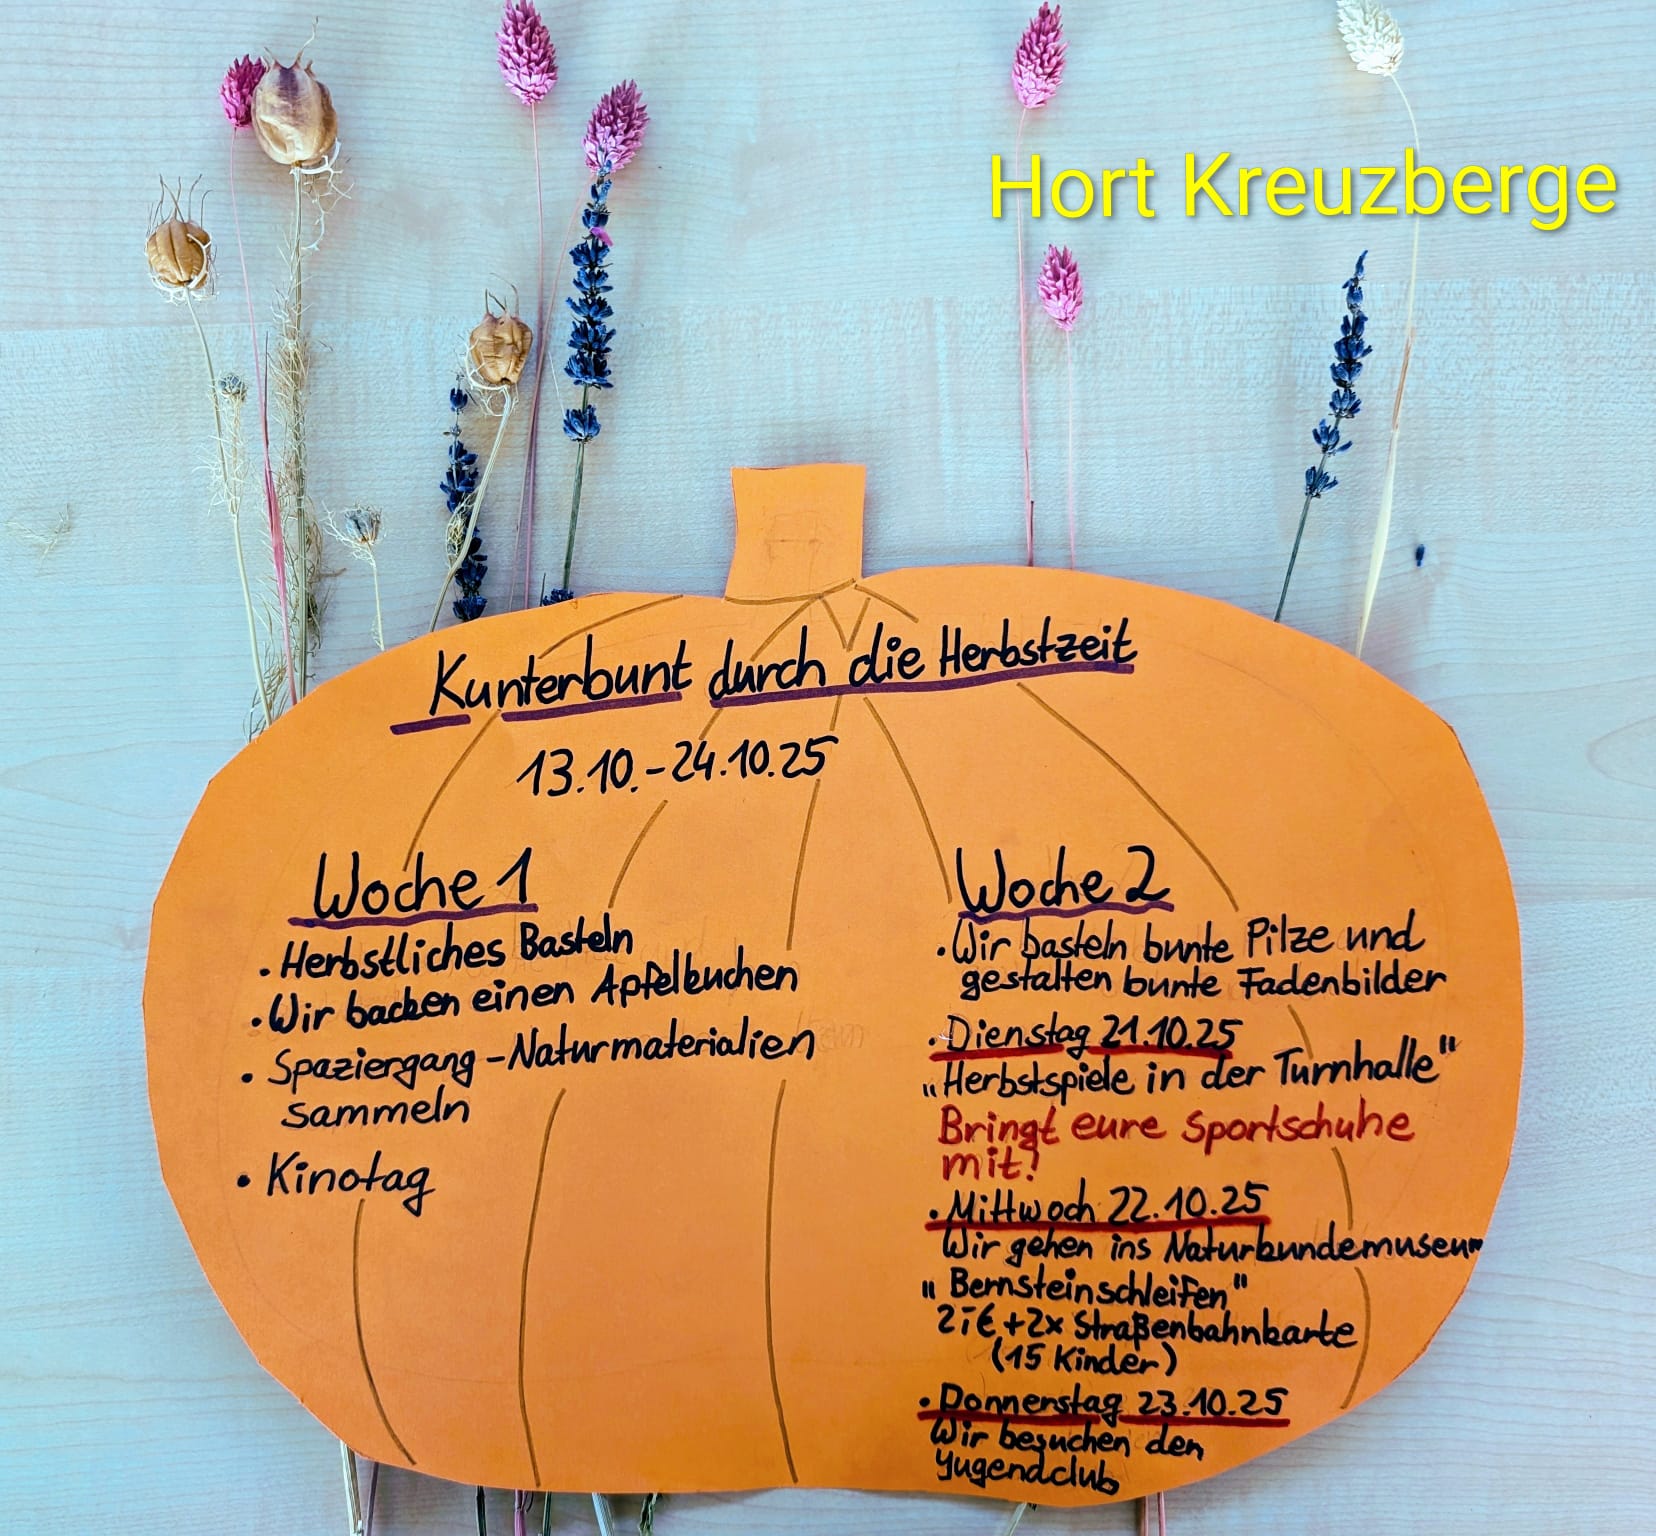 Hort Kreuzberge
Kunterbunt durch die Herbstzeit
13.10.-24.10.25
Woche 1
• Herbstliches Basteln
• Wir backen einen Apfelkuchen
• Spaziergang - Naturmaterialien
sammeln
• Kinotag
Woche 2
• Wir basteln bunte Pilze und
gestalten bunte Fadenbilder
• Dienstag 21.10.25
„Herbstspiele in der Turnhalle"
Bringt eure Sportschuhe
mit!
• Mittwoch 22.10.25
Wir gehen ins Naturkundemuseum
"Bernsteinschleifen"
2,-€ + 2x Straßenbahnkarte
(15 Kinder)
• Donnerstag 23.10.25
Wir besuchen den
Jugendclub